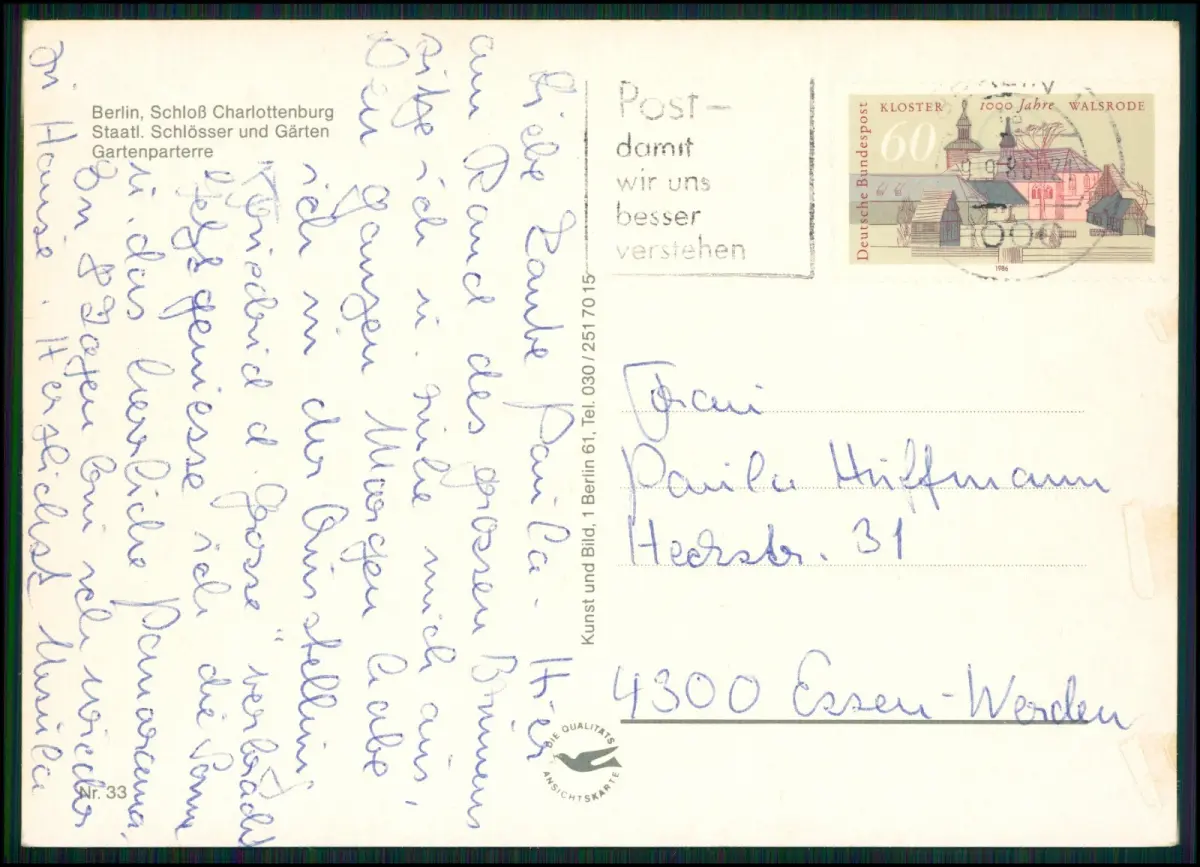 Berlin, Schloß Charlottenburg
Staatl. Schlösser und Gärten
Gartenparterre
Liebe Tante Paula. Hier
am Rand des grossen Brunnens
sitze ich u. ruhe mich aus,
Den ganzen Morgen habe
ich in der Ausstellung
"Friedrich d. Grosse" verbracht
Jetzt geniesse ich die Sonne
u. das herrliche Panorama,
In 8 Tagen bin ich wieder
zu Hause. Herzlichst Ursula
Nr. 33
Kunst und Bild, 1 Berlin 61, Tel. 030 / 251 70 15
DIE QUALITÄTS
ANSICHTSKARTE
Post-
damit
wir uns
besser
verstehen
Deutsche Bundespost
KLOSTER 1000 Jahre WALSRODE
60
1986
Frau
Paula Hüffmann
Heckstr. 31
4300 Essen-Werden